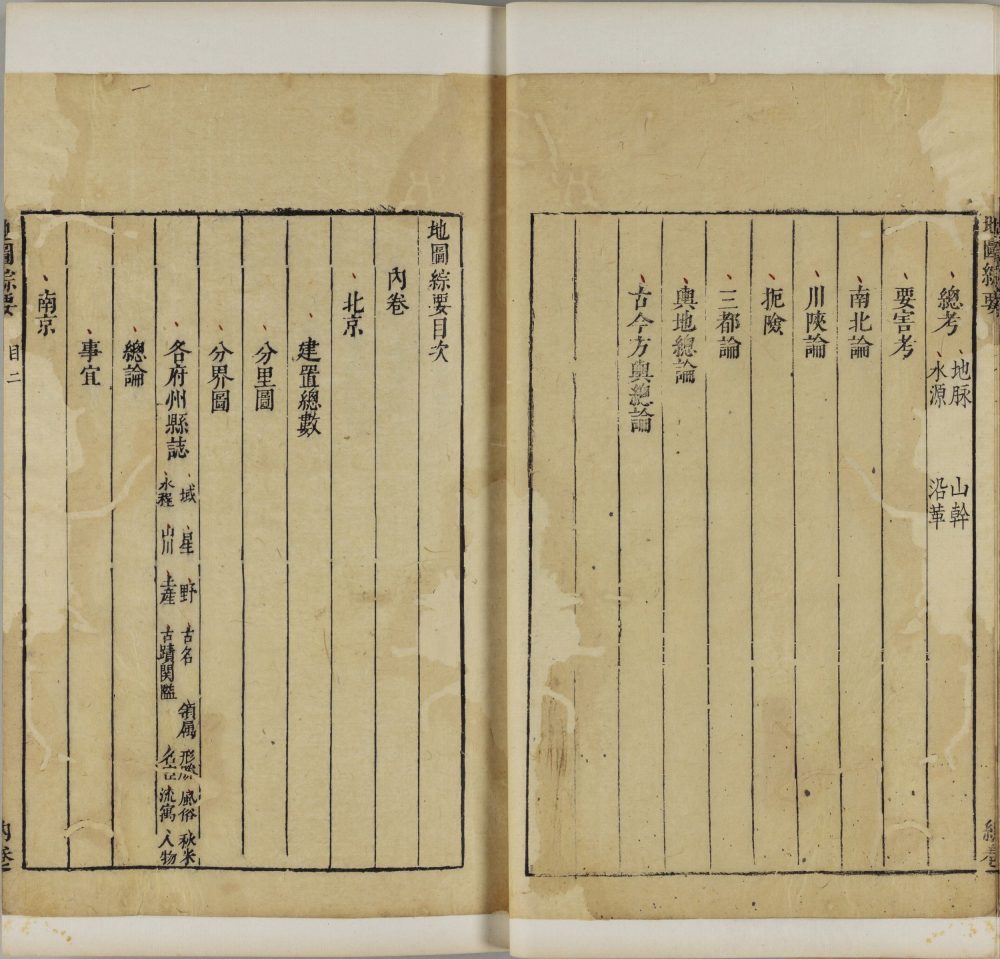 地圖綜要
總考 地脉 山幹
水源 沿革
要害考
南北論
川陝論
扼險
三都論
輿地總論
古今方輿總論
總卷
地圖綜要目次
內卷
北京
建置總數
分里圖
分界圖
各府州縣誌 域 星野 古名 領属 形勝 風俗 秋米
水程 山川 土產 古蹟 関隘 流寓 人物
總論
事宜
南京
地圖綜要 目二 內卷